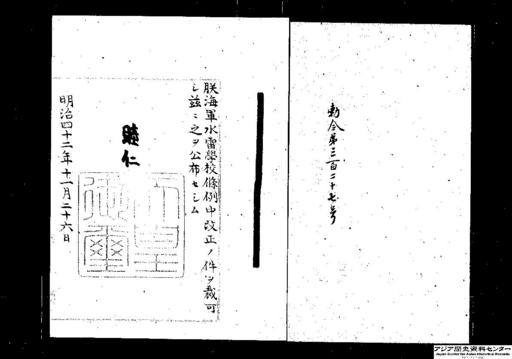 勅令第三百二十七号
朕海軍水雷學校條例中改正ノ件ヲ裁可
シ茲ニ之ヲ公布セシム
睦仁
天皇御璽
明治四十二年十一月二十六日
アジア歴史資料センター
Japan Center for Asian Historical Records